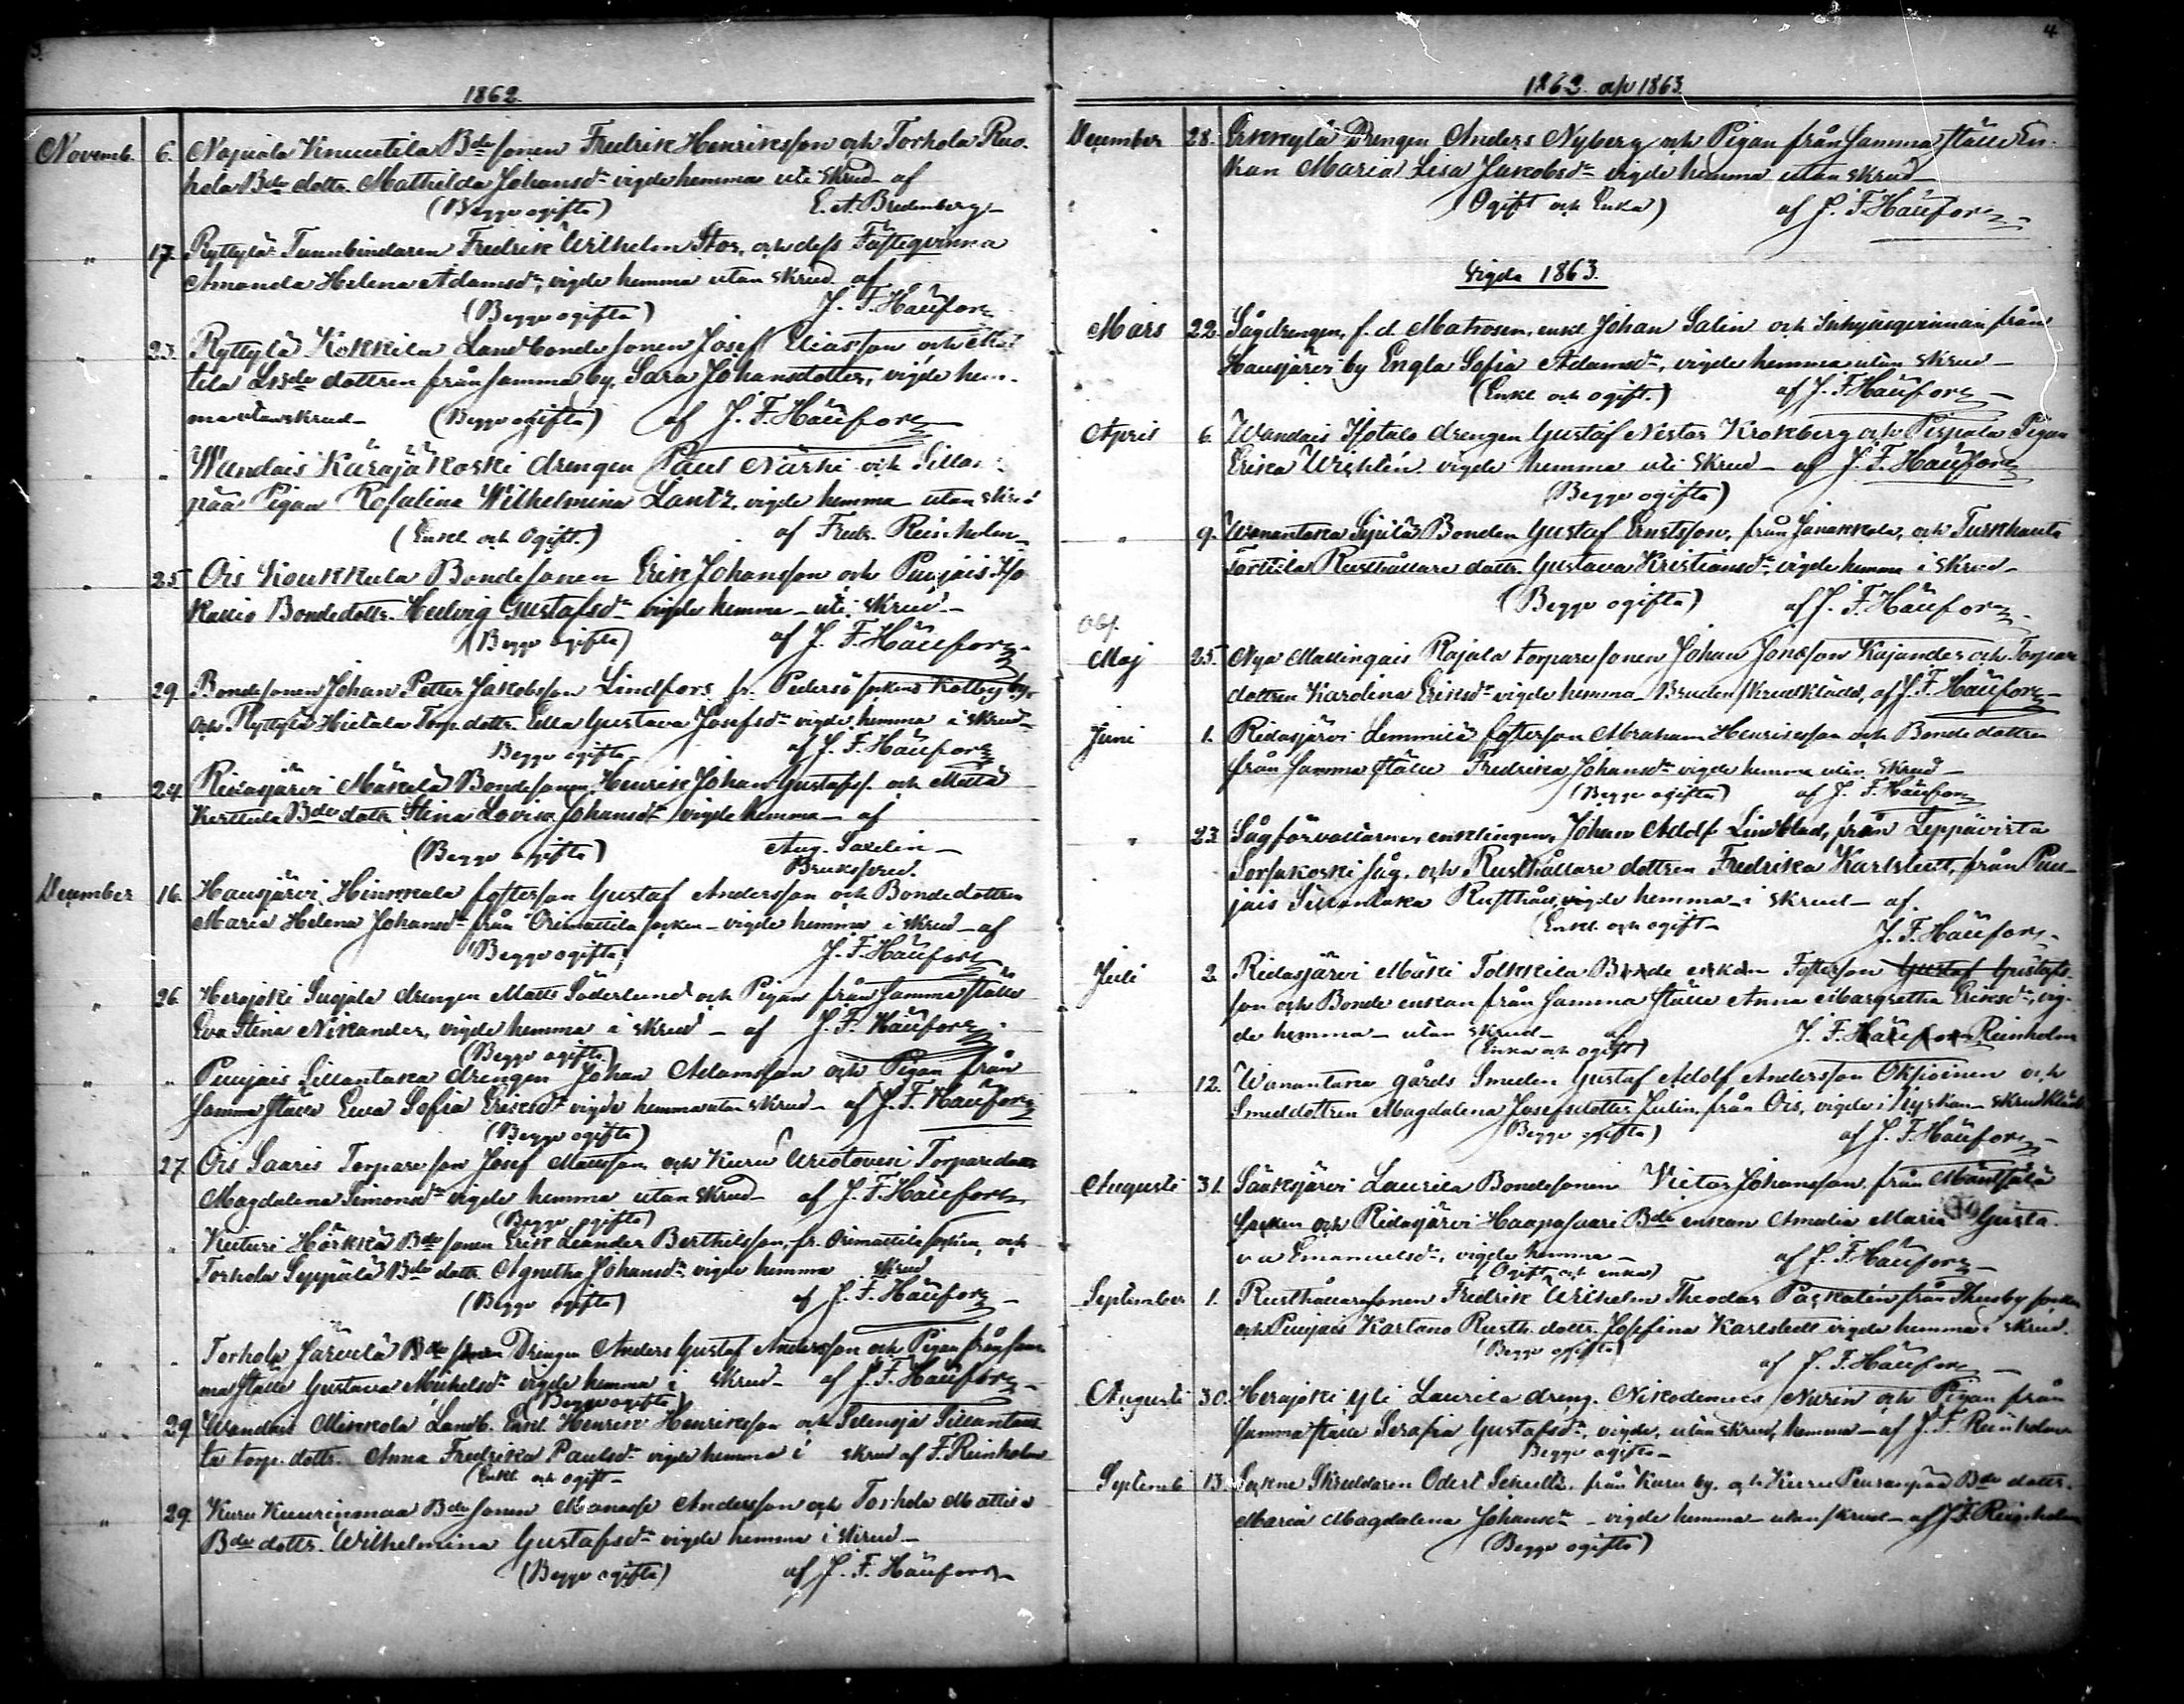 3.
1862.
Novemb. 6. Napiala Vinuntila Bde sonen Fredrik Henriksson och Torhola Ruo-
hola Bde dottr. Mathilda Johansdr vigde hemma uti skrud af
(Begge ogifta) E. A. Bredenberg
" 17. Ryttylä Tunnbindaren Fredrik Wilhelm Stor, och dess Fästeqvinna
Amanda Helena Adamsdr, vigde hemma utan skrud af
(Begge ogifta) J. F. Häufors
" 23. Ryttylä Kokkila Landbonde sonen Josef Eliasson och
tila dottren från samma by, Sara Johansdotter, vigde hem-
ma utan skrud (Begge ogifta) af J. F. Häufors
" " Wandais Käräjäkoski drengen Paul Närhi och Sillan-
pää Pigan Rosalina Wilhelmina Lantz, vigde hemma utan skrud
(Enkl. och Ogift.) af Fredr. Reinholm
" 25 Ois Koukkula Bondesonen Erik Johansson och Puujais Iso
Kallio Bondedottr. Hedvig Gustafsdr vigde hemma uti skrud
(Begge ogifta) af J. F. Häufors
" 29. Bondesonen Johan Petter Jakobsson Lindfors fr. Pedersö sockens Kolby by,
och Ryttylä Hietala Torp. dottr. Ulla Gustava Josefsdr vigde hemma i skrud
Begge ogifta af J. F. Häufors
" 24 Ridasjärvi Mäkelä Bondesonen Henrik Johan Gustafss. och
Kerttula Bde dottr. Stina Lovisa Johansdr vigde hemma af
(Begge ogifta) Aug. Saxelin
Brukspred.
December 16. Hausjärvi Hinkkala fosterson Gustaf Andersson och Bondedottren
Maria Helena Johansdr från Orimattila socken vigde hemma i skrud af
(Begge ogifta) J. F. Häufors
" 26. Herajoki Suojala drengen Matts Söderlund och Pigan från samma ställe
Eva Stina Nikander, vigde hemma i skrud af J. F. Häufors
(Begge ogifta)
" " Puujais Sillantaka drengen Johan Adamsson och Pigan från
samma ställe Eva Sofia Eriksdr vigde hemma utan skrud af J. F. Häufors
(Begge ogifta)
" 27 Ois Saaris Torpare son Josef Mattsson och Kuru Torpare dottr
Magdalena Simonsdr vigde hemma utan skrud af J. F. Häufors
(Begge ogifta)
" " Keituri Hörkkä Bde sonen Erik Leander Berthilsson, fr. Orimattila socken, och
Torhola Seppälä Bde dottr. Agnetha Johansdr vigde hemma skrud
(Begge ogifta) af J. F. Häufors
" " Torhola Järvelä Bde sonen Drengen Anders Gustaf Andersson och Pigan från sam-
ma ställe Gustava Mickelsdr vigde hemma i skrud af J. F. Häufors
(Begge ogifta)
" 29. Wandais Mikkola Landb. Enkl. Henrik Henriksson och Selänoja
torp. dottr. Anna Fredrika Paulsdr vigde hemma i skrud af F. Reinholm
(Enkl. och ogift
" 29. Kuru Kuurinmaa Bde sonen Manasse Andersson och Torhola Mattila
Bde dottr. Wilhelmina Gustafsdr vigde hemma i skrud
(Begge ogifta) af J. F. Häufors
4
1862 och 1863.
December 28. Erkkylä Drengen Anders Nyberg och Pigan från samma ställe En-
kan Maria Lisa Jakobsdr vigde hemma utan skrud
(Ogift och Enka) af J. F. Häufors
Vigda 1863.
Mars 22. Sågdrengen, f. d. Matrosen, enkl. Johan Salin och Inhysesqvinnan från
Hausjärvi by Engla Sofia Adamsdr, vigde hemma utan skrud
(Enkl. och ogift.) af J. F. Häufors
April 6. Wandais Isotalo drengen Gustaf Nestor Krokberg och Pigan
Erika vigde hemma uti skrud af J. F. Häufors
(Begge ogifta)
" 9. Wanantaka Sipilä Bonden Gustaf Ernstsson, från Janakkala, och Turkhauta
Torttila Rusthållare dottr. Gustava Kristiansdr, vigde hemma i skrud
(Begge ogifta) af J. F. Häufors
Obs.
Maj 25. Nya Mallinqais Rajala torpare sonen Johan Jonasson Kajander och Torpare
dottren Karolina Eriksdr vigde hemma Bruden skrudklädd, af J. F. Häufors
Juni 1. Ridasjärvi Lemmilä fosterson Abraham Henriksson och Bonde dottren
från samma ställe Fredrika Johansdr vigde hemma utan skrud
(Begge ogifta) af J. F. Häufors
" 23. Sågförvaltaren, enklingen, Johan Adolf Lindblad, från Leppävirta
Sorsakoski såg, och Rusthållare dottren Fredrika Karlstedt, från Puu-
jais Sillantaka Rusthåll, vigde hemma i skrud af
(Enkl. och ogift J. F. Häufors
Juli 2. Ridasjärvi Mäki Tolkkila Bonde enkan Fosterson Gustaf Gustafs-
son och Bonde enkan från samma ställe Anna Margretha Eriksdr, vig-
de hemma utan skrud af J. F. Häufors Reinholm
(Enka och ogift)
" 12. Wanantaka gårds Smeden Gustaf Adolf Andersson Oksjoinen och
Smeddottren Magdalena Josefsdotter Julin, från Ois, vigde i kyrkan skrudklädd
(Begge ogifta) af J. F. Häufors
Augusti 31. Sääksjärvi Laurila Bondesonen Victor Johansson, från Mäntsälä
socken och Ridasjärvi Haapasaari Bde enkan Amalia Maria Gusta-
va Emanuelsdr, vigde hemma af J. F. Häufors
(Ogift och enka)
September 1. Rusthållaresonen Fredrik Wilhelm Theodor från Thusby socken
och Puujais Kartano Rusth. dottr. Josefina Karlstedt vigde hemma i skrud.
(Begge ogifta) af J. F. Häufors
Augusti 30. Herajoki Yli Laurila dreng. Nikodemus Nurin och Pigan från
samma ställe Serafia Gustafsdr, vigde, utan skrud, hemma af J. F. Reinholm
Begge ogifta
Septemb 13. Sockne Skräddaren Odert från Kuru by, och Kuru Peuranpää Bde dottr.
Maria Magdalena Johansdr vigde hemma utan skrud af J. F. Reinholm
(Begge ogifta)